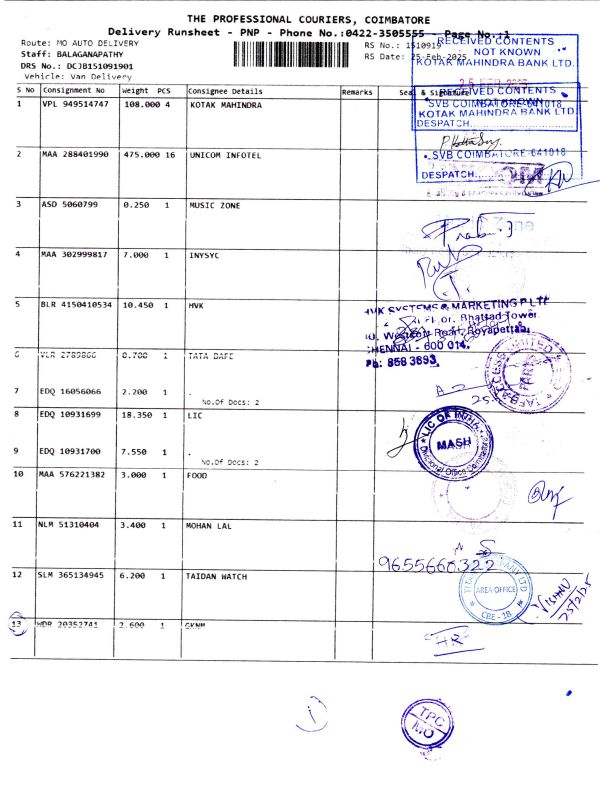 THE PROFESSIONAL COURIERS, COIMBATORE
Delivery Runsheet - PNP - Phone No.:0422-3505555 - Page No.:1
Route: MO AUTO DELIVERY
RS No.: 1510919
Staff: BALAGANAPATHY
RS Date: 25-Feb-2025
DRS No.: DCJB151091901
Vehicle: Van Delivery
RECEIVED CONTENTS
NOT KNOWN
KOTAK MAHINDRA BANK LTD.
S No Consignment No Weight PCS Consignee Details Remarks Seal & Signature
1 VPL 949514747 108.000 4 KOTAK MAHINDRA
RECEIVED CONTENTS
NOT KNOWN
SVB COIMBATORE-641018
KOTAK MAHINDRA BANK LTD
DESPATCH
SVB COIMBATORE-641018
DESPATCH
2 MAA 288401990 475.000 16 UNICOM INFOTEL
3 ASD 5060799 0.250 1 MUSIC ZONE
4 MAA 302999817 7.000 1 INYSYC
5 BLR 4150410534 10.450 1 HVK
HVK SYSTEMS & MARKETING P LTD
Bhattad Tower
Westcott Road, Royapettah
CHENNAI - 600 014.
Ph: 858 3693
6 VLR 2789866 0.700 1 TATA DAFE
7 EDQ 16056066 2.200 1 .
No.Of Docs: 2
8 EDQ 10931699 18.350 1 LIC
LIC OF INDIA
MASH
Divisional Office Coimbatore
9 EDQ 10931700 7.550 1 .
No.Of Docs: 2
10 MAA 576221382 3.000 1 FOOD
11 NLM 51310404 3.400 1 MOHAN LAL
9655660322
12 SLM 365134945 6.200 1 TAIDAN WATCH
AREA OFFICE
CBE - 18
VISHNU
25/2/25
13 HDR 20352741 2.600 1 GKNM
HR
1
TPC
MO